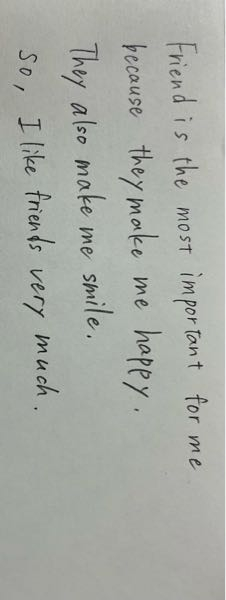 Friend is the most important for me
because they make me happy.
They also make me smile.
So, I like friends very much.